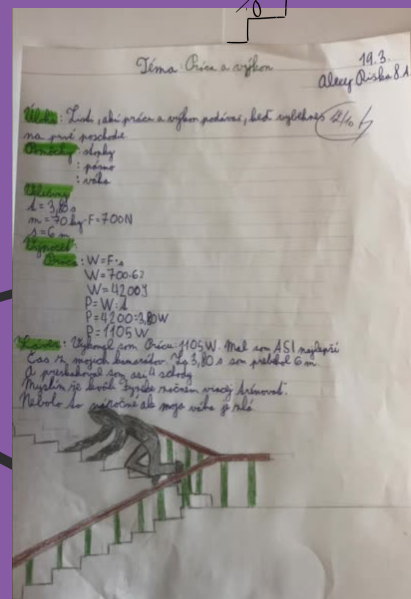 Téma: Práca a výkon
19.3.
Riska 8.A
Úloha: Zisti, akú prácu a výkon podávaš, keď vybehneš
na prvé poschodie
Pomôcky: stopky
: pásmo
: váha
t = 3,80 s
m = 70 kg F=700N
s = 6 m
Výpočet:
Práca: W=F·s
W=700·6
W=4200J
P=W:t
P=4200:3,80W
P=1105W
Záver: Vykonal som Prácu 1105W. Mal som ASI najlepší
čas z mojich kamarátov. Za 3,80 s som prebehol 6 m.
A preskakoval som asi 4 schody
Myslím že kvôli začnem viacej trénovať.
Nebolo to náročné ale moja váha je zlá